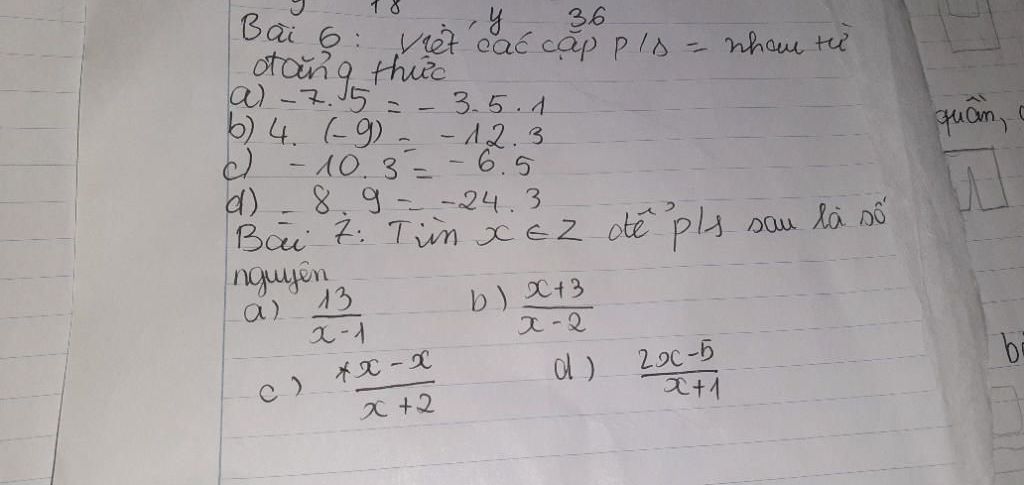 y 18 y 36
Bài 6: Viết các cặp p/s = nhau từ
đẳng thức
a) -7.5 = -3.5.1
b) 4. (-9) = -12.3
c) -10.3 = -6.5
d) -8.9 = -24.3
Bài 7: Tìm x ∈ Z để p/s sau là số
nguyên
a) 13/(x-1) b) (x+3)/(x-2)
c) (*x-x)/(x+2) d) (2x-5)/(x+1)
quần,